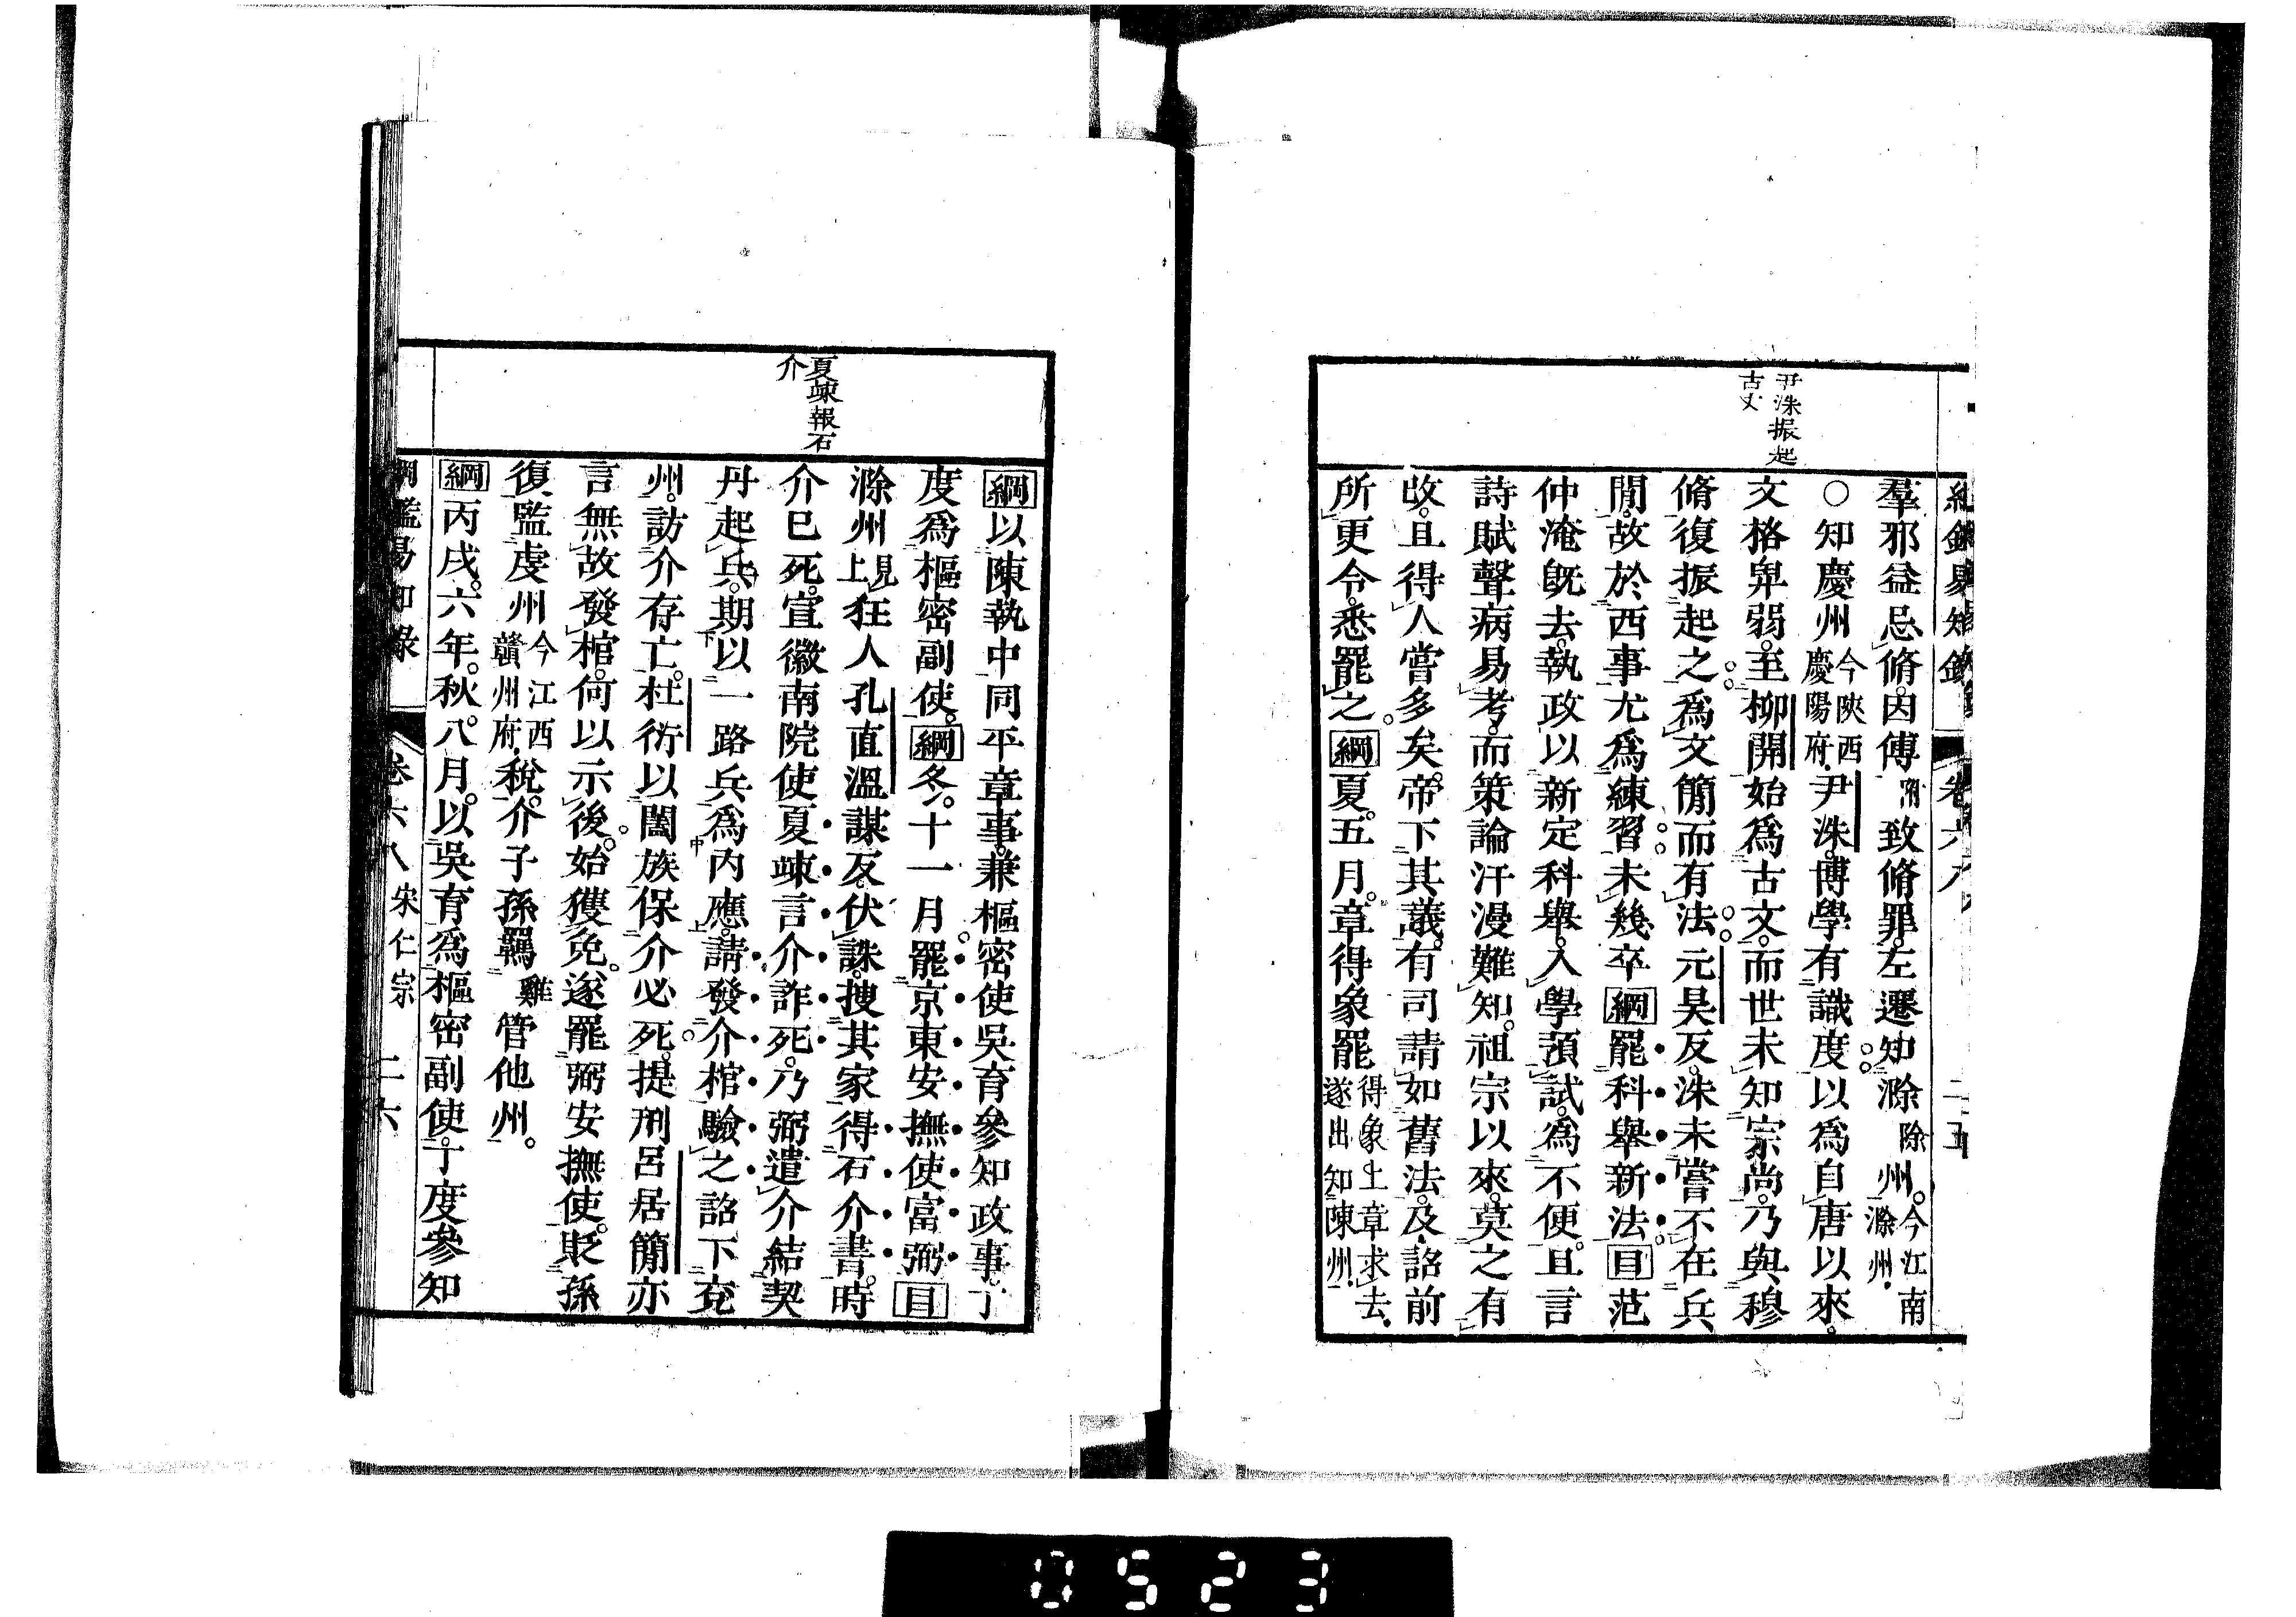 尹洙振起
古文
羣邪益忌脩因傅附致脩罪左遷知滁除州今江南滁州
○知慶州今陝西慶陽府尹洙博學有識度以爲自唐以來
文格卑弱至柳開始爲古文而世未知宗尚乃與穆
脩復振起之爲文簡而有法元昊反洙未嘗不在兵
閒故於西事尤爲練習未幾卒綱罷科舉新法目范
仲淹旣去執政以新定科舉入學預試爲不便且言
詩賦聲病易考而策論汗漫難知祖宗以來莫之有
改且得人嘗多矣帝下其議有司請如舊法及詔前
所更令悉罷之綱夏五月章得象罷得象上章求去遂出知陳州
夏竦報石
介
綱以陳執中同平章事兼樞密使吳育參知政事丁
度爲樞密副使綱冬十一月罷京東安撫使富弼目
滁州見上狂人孔直溫謀反伏誅搜其家得石介書時
介已死宣徽南院使夏竦言介詐死乃弼遣介結契
丹起兵期以一路兵爲內應請發介棺驗之詔下兗
州訪介存亡杜衍以闔族保介必死提刑呂居簡亦
言無故發棺何以示後始獲免遂罷弼安撫使貶孫
復監虔州今江西贛州府稅介子孫羈雞管他州
綱丙戌六年秋八月以吳育爲樞密副使丁度參知
綱鑑易知錄 卷六八 宋仁宗 二六